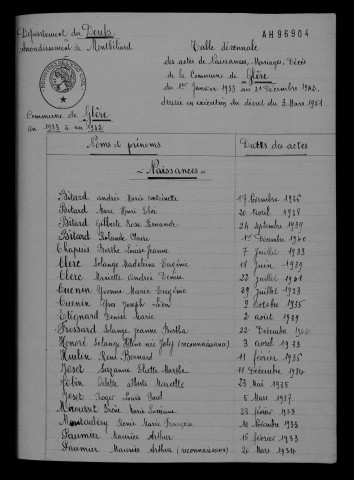 Département du Doubs
Arrondissement de Montbéliard
AH96904
Table décennale
des actes de Naissances, Mariages, Décès
de la Commune de Glère
du 1er Janvier 1933 au 31 Décembre 1942.
dressée en exécution du décret du 3 Mars 1951
Commune de Glère
an 1933 à an 1942
Noms et prénoms Dates des actes
- Naissances -
Bitard Andrée Marie Antoinette 17 Décembre 1936
Bitard Marc Henri Eloi 20 Avril 1938
Bitard Gilberte Rose Fernande 24 Septembre 1939
Bitard Rolande Claire 1er Décembre 1940
Chapuis Berthe Louise Jeanne 7 Juillet 1933
Clerc Solange Madeleine Eugénie 18 Juin 1939
Clerc Mariette Andrée Denise 22 Juillet 1941
Cuenin Yvonne Marie Eugénie 29 Juillet 1933
Cuenin Yves Joseph Léon 9 Octobre 1935
Etignard Denise Marie 2 Août 1939
Frossard Solange Jeanne Bertha 22 Décembre
Honoré Solange Hélène née Joly (reconnaissance) 3 Avril 1933
Huelin René Bernard 11 Février 1936
Joset Suzanne Ginette Marthe 11 Décembre 1934
Odette Alberte Marcelle 23 Mai 1935
Joset Roger Louis Paul 5 Mars 1937
Marie Suzanne 23 Février 1933
Renée Marie Françoise 10 Décembre 1933
Paumier Maurice Arthur 16 Février 1933
Paumier Maurice Arthur (reconnaissance) 20 Mars 1934